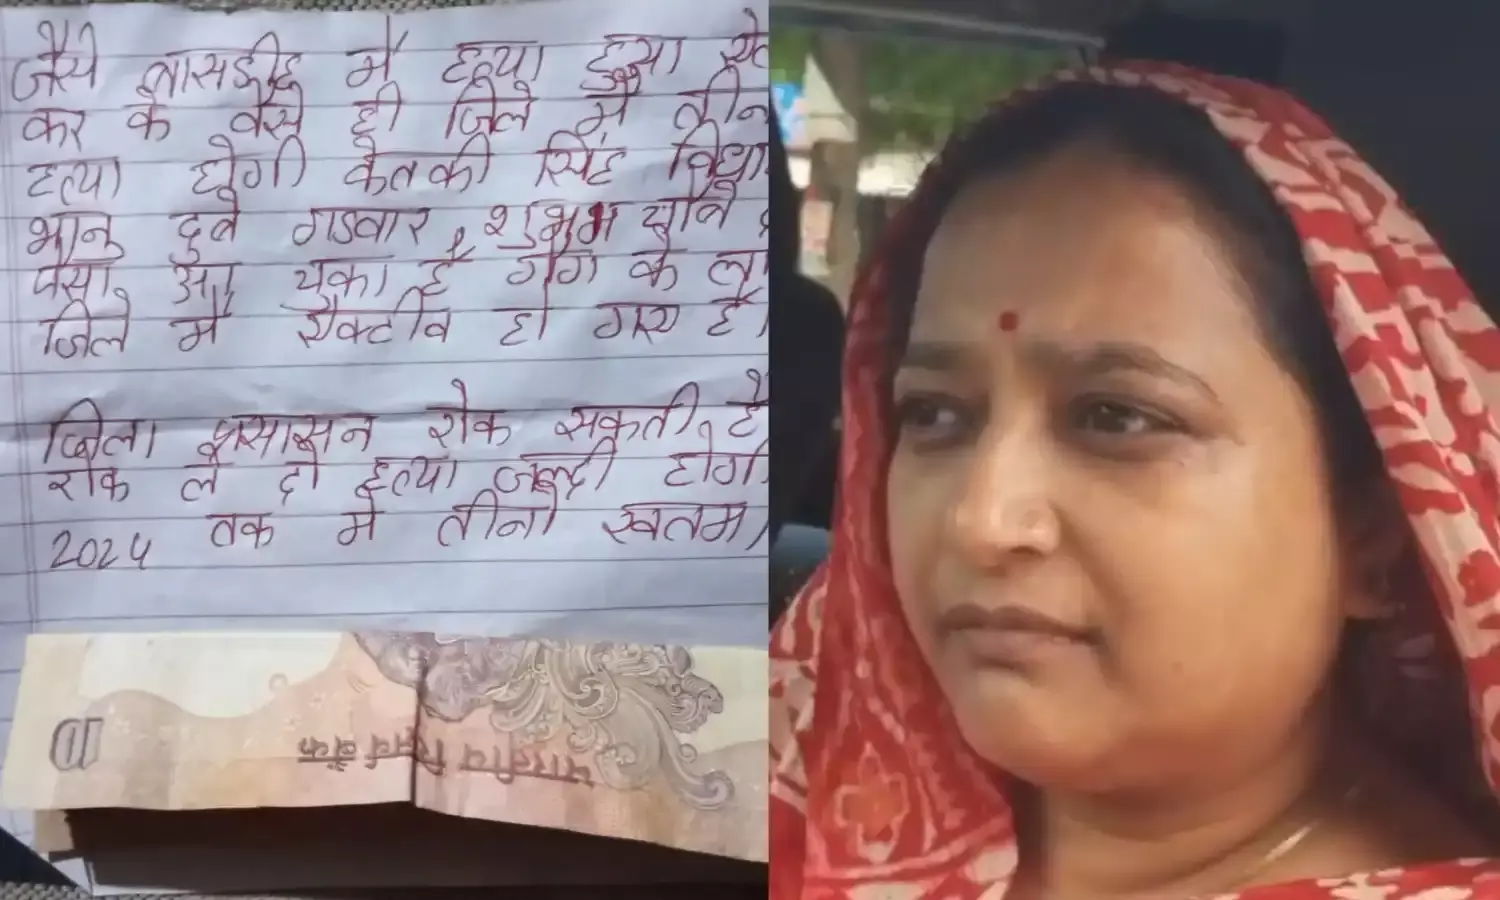 जैसे बासडीह में हत्या हुआ
कर के वैसे ही जिले में तीन
हत्या होगी केतकी सिंह विधा
भानु दुबे गडवार, शुभम चौबे
पैसा आ चुका है गैंग के
जिले में एक्टीव हो गए है।
जिला प्रसासन रोक सकती है
रोक ले दो हत्या जल्दी होगी
2024 तक में तीनो खतम।
10
भारतीय रिज़र्व बैंक